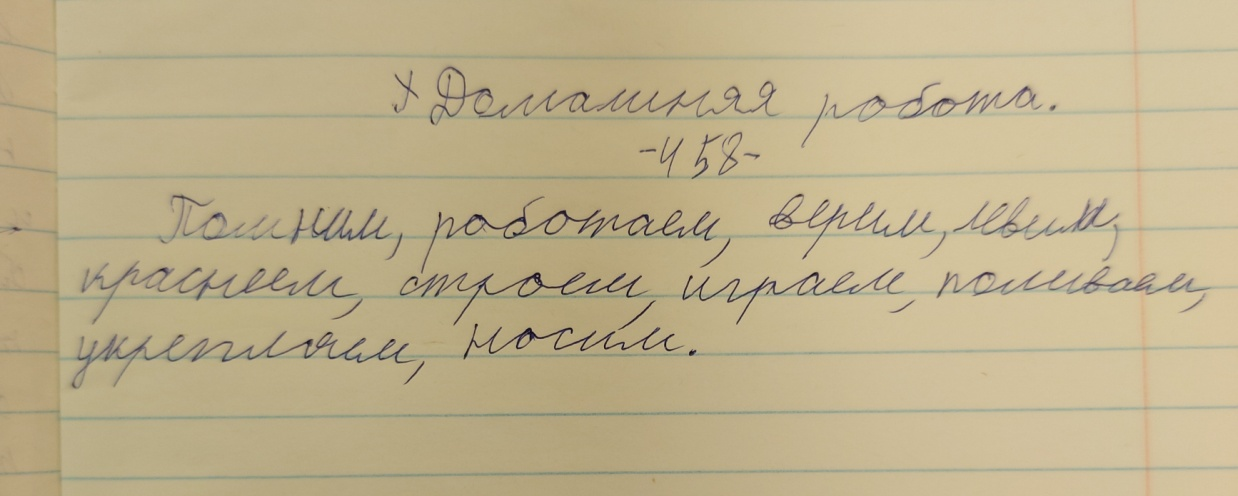 Домашняя работа.
-458-
Помним, работаем, верим,
краснеем, строем, играем, поливаем,
укрепляем, носим.